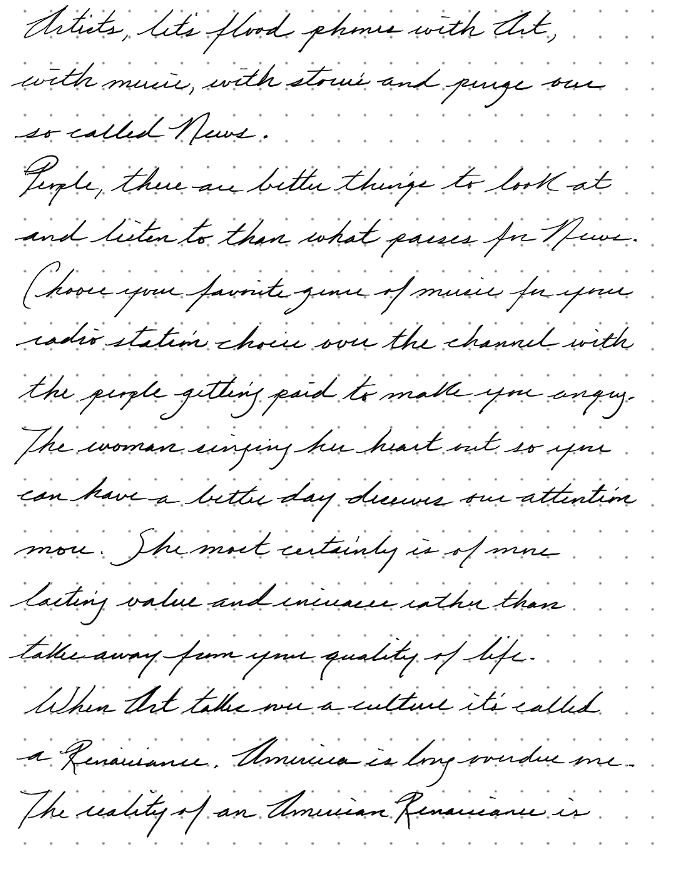 Artists, let's flood phones with Art,
with music, with stories and purge our
so called News.
People, there are better things to look at
and listen to than what passes for News.
Choose your favorite genre of music for your
radio station choice over the channel with
the people getting paid to make you angry.
The woman singing her heart out so you
can have a better day deserves our attention
more. She most certainly is of more
lasting value and increases rather than
takes away from your quality of life.
When Art takes over a culture it's called
a Renaissance. America is long overdue one.
The reality of an American Renaissance is